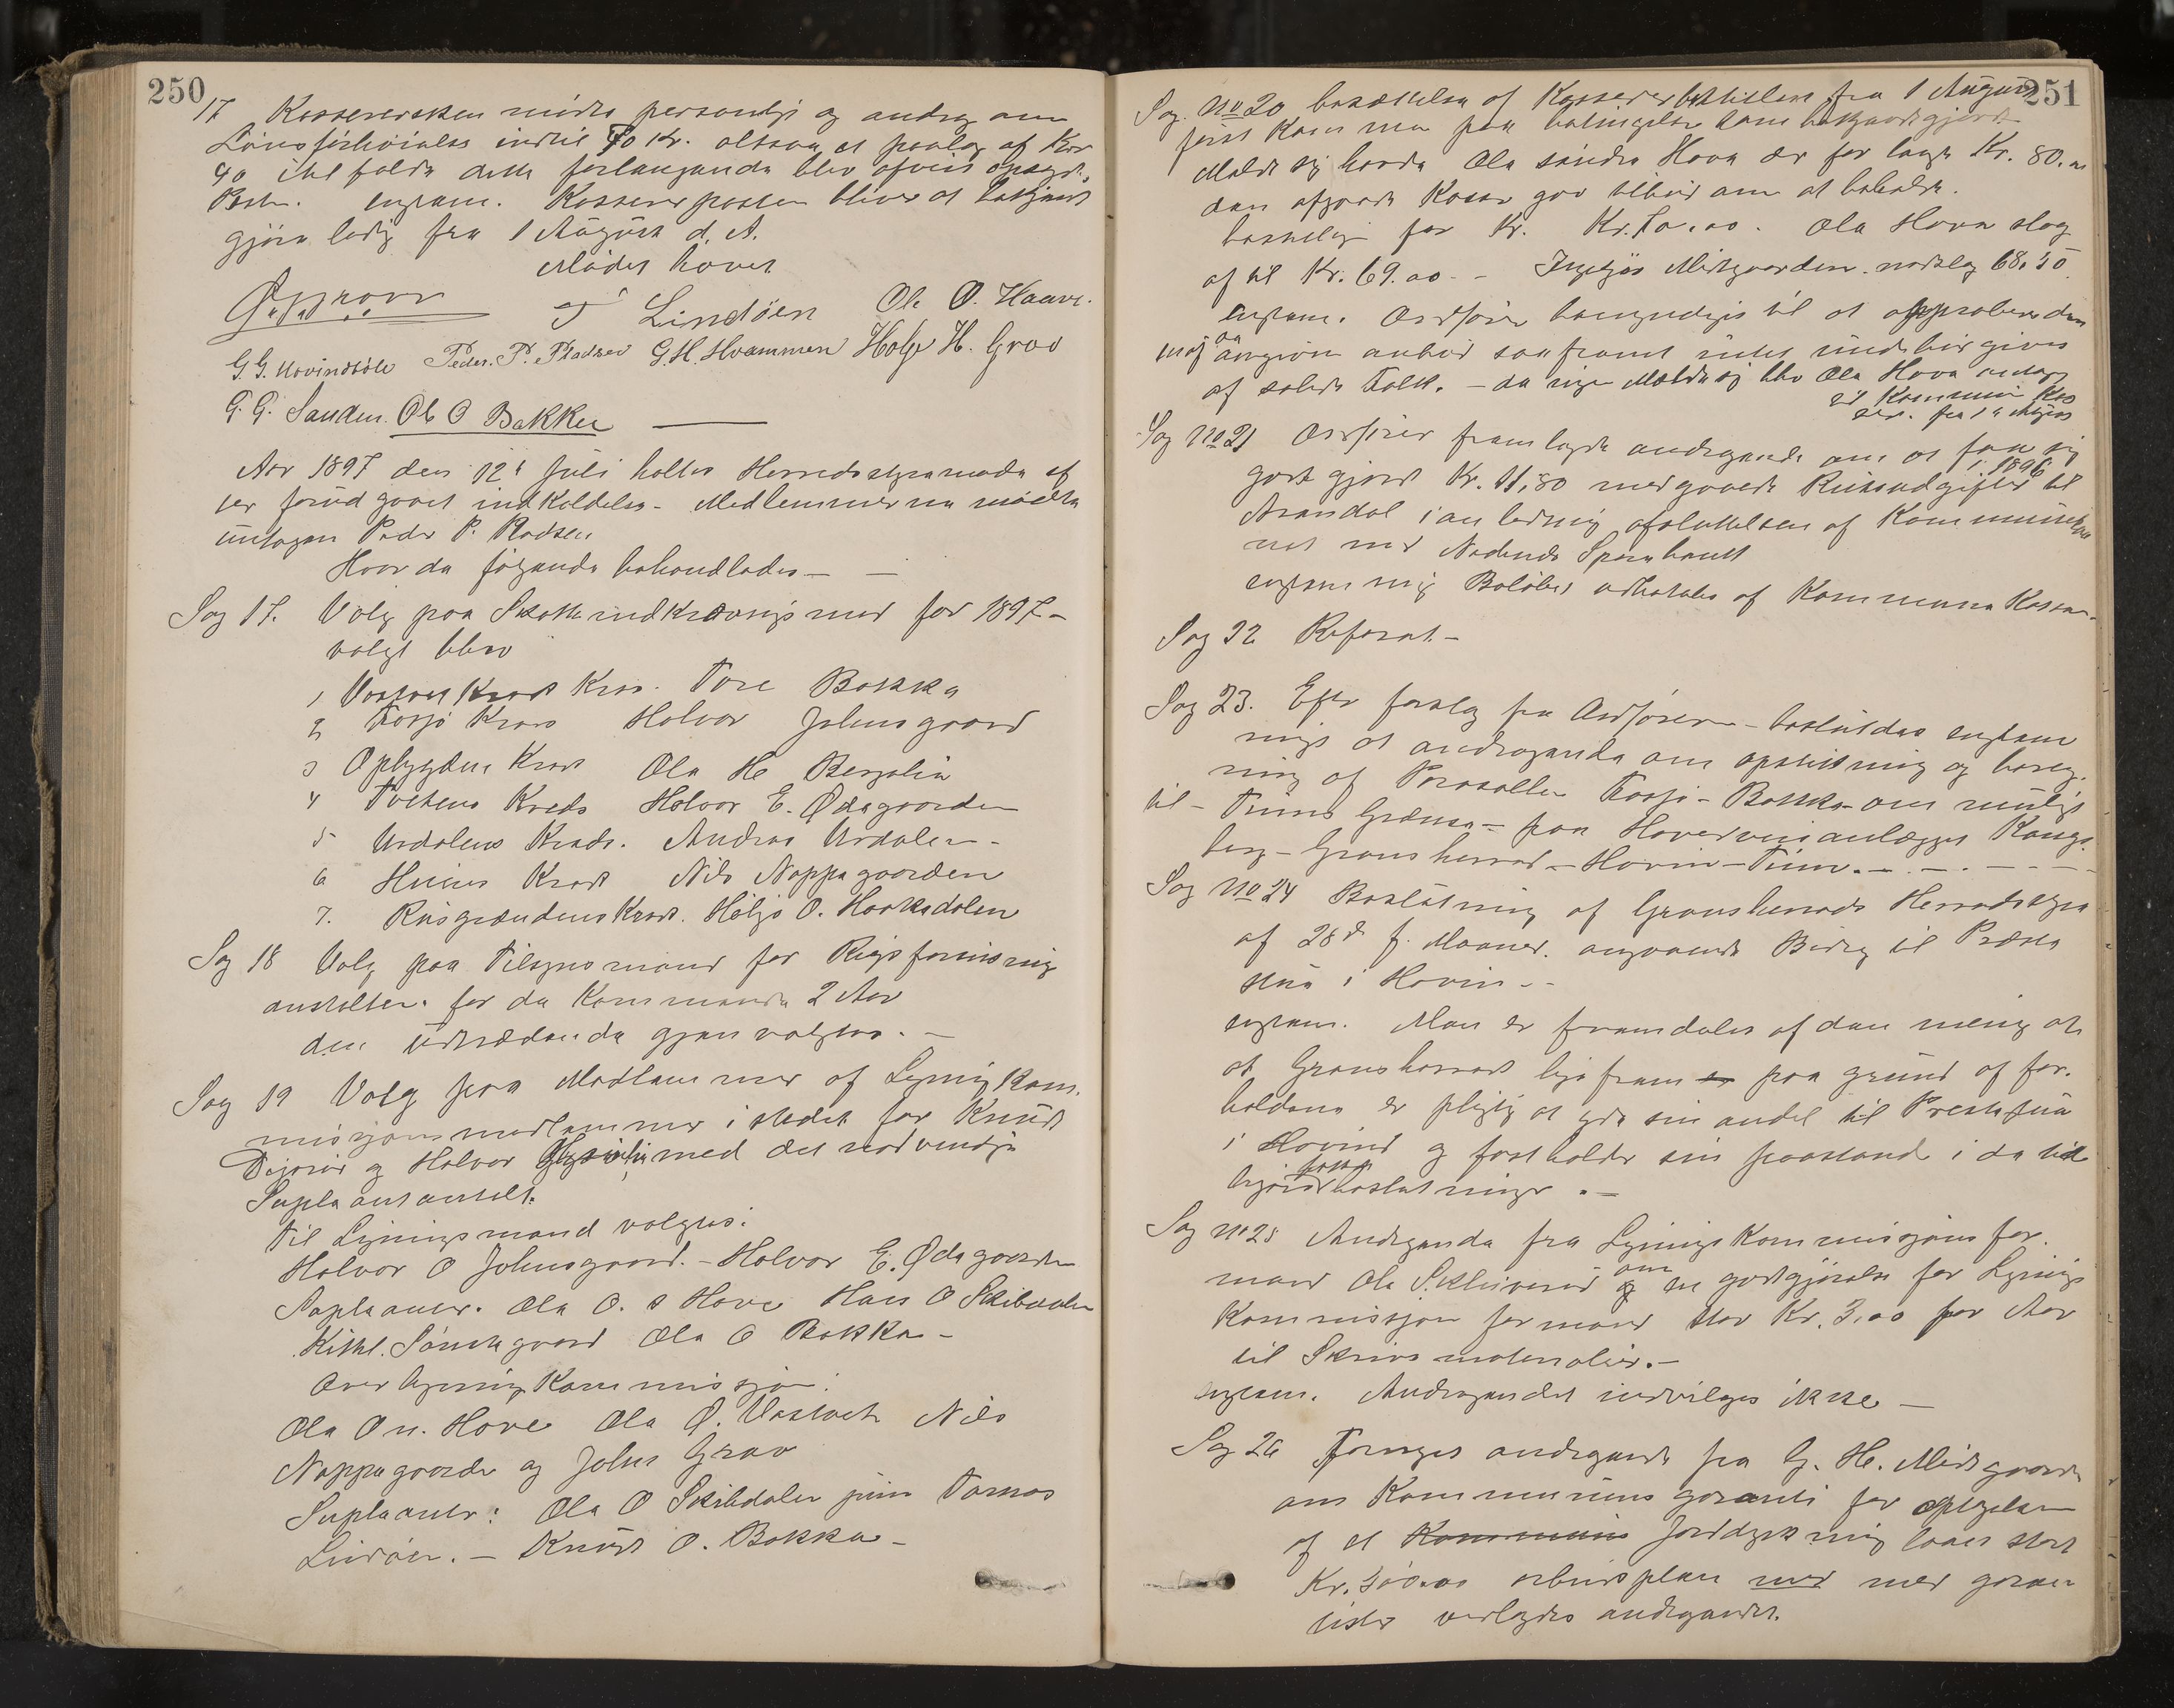 250
17 Kassereren mødte personlig og androg om
Lønsforhøielse indtil 70 Kr. altsaa et paalæg af Kr
40 i tilfælde dette forlangende blev afvist opsagde
Posten. enstem. Kassererposten bliver at bekjendt
gjøre ledig fra 1 August d. A.
Mødet hævet
T Lindöen Ole O. Haave.
G. G. Hovindbøle Peder. P. Pladsen G. H. Hvammen Holje H. Grov
G. G. Sanden. Ole O Bakken
Aar 1897 den 12te Juli holdtes Herredsstyremøde ef
ter forud gaaet indkaldelse - Medlemmerne mødte
untagen Peder P. Pladsen
Hvor da følgende behandledes — —
Sag 17. Valg paa Skatteindkrævningsmænd for 1897 -
valgt blev
1 Kreds Tore Bakka
2 Fosjø Kreds Halvor Johnsgaard
3 Opbygdens Kreds Ola H Bergelia
4 Tvetens Kreds Halvor E. Ødegaarden
5 Urdalens Kreds. Andres Urdalen -
6 Husens Kreds Nils Nappegaarden
7. Rusgrændens Kreds. Heljø O. Haakedalen
Sag 18 Valg paa Tilsynsmænd for
anstalten for de Kommende 2 Aar
den udtrædende gjenvalgtes. —
Sag 19 Valg paa Medlemmer af Ligningskom
misjonsmedlemmer i stedet for Knud
og Halvor med det nødvendige
Supleantantal.
Til Ligningsmænd valgtes:
Halvor O Johnsgaard. - Halvor E. Ødegaarden
Supleanter. Ola O. s Hove Hans O Skibdalen
Kittel. Søndegaard Ola O Bakka -
Overligningskommissjon:
Ola O n. Hove Ola O. Nils
Nappegaarden og Johns Grav
Supleanter: Ola O Skibdalen jun Tarmos
Lindöen. — Knud O. Bakka -
251
Sag. No 20 besættelse af Kassererbestillen fra 1 August
først Kom man paa betingelse som bekjendtgjørt
Meldt sig havde Ola søndre Hova der for langte Kr. 80.00
den afgaaede Kasser gav tilbud om at beholde.
bestilling for Kr. Kr. 70.00. Ola Hova slog
af til Kr. 69.00 - Ingebjør Midtgaarden nedslag 68.50
enstem. Ordfører bemyndiges til at approbere den
af angivne anbud saafremt intet underbud gives
af solide Folk. — da ingen meldte sig blev Ola Hova antaget
til Kommune Kas
serer. fra 1ste August
Sag No 21 Ordfører fremlagde andragende om at faa sig
godtgjort Kr. 11,80 medgaaede Reiseudgifter i 1896 til
Arendal i anledning afsluttelsen af Kommunelaa
net med Nedenes Sparebank
enstemmig Beløbet udbetales af Kommune Kassen.
Sag 22 Referat. —
Sag 23. Efter forslag fra Ordføreren - besluttedes enstem
mig at andragende om opstikning og bereg
ning af Parsellen Fosjø - Bakka om muligt
til - Tinns Grændse - paa Hovedveianlægget Kongs
berg - Gransherred - Hovin - Tinn. — . —
Sag No 24 Beslutning af Gransherreds Herredsstyre
af 28de f. Maaned. angaaende Bidrag til Præste
stua i Hovin - -
enstem. Man er fremdeles af den mening at
at Gransherred ligefrem paa grund af for.
holdene er pligtig at yde sin andel til Prestestua
i Hovind og fastholder sin paastand i de tid
ligere fattede beslutninger. —
Sag No 25 Andragende fra Ligningskommissjons for
mand Ola om en godtgjørelse for Lignings
Kommissjon formand stor Kr. 3.00 per Aar
til Skrivematerialier. —
enstem. Andragendet indvilges ikke —
Sag 26 Fornyet andragende fra G. H. Midtgaarden
om Kommunens garanti for optagelse
af et Kommune Jorddyrkning laan stort
Kr. 300.00 arbeidsplan med med garan
tister vedlagdes andragendet.